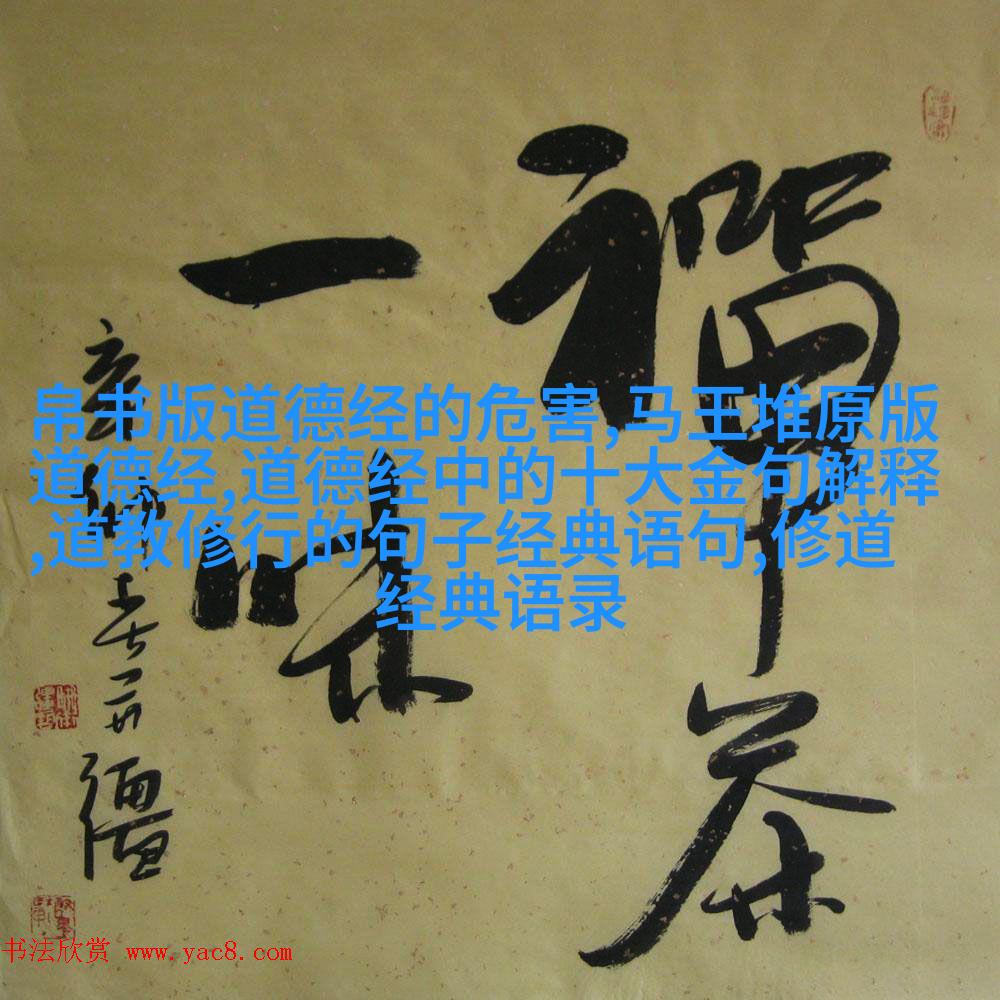 禅茶
一味
帛书版道德经的危害,马王堆原版
道德经,道德经中的十大金句解释
,道教修行的句子经典语句,修道
经典语录
书法欣赏 www.yac8.com